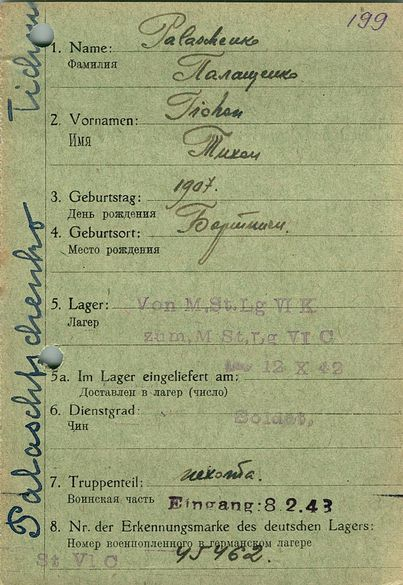 199
Palaschtschenko Tichon
1. Name: Palaschenko
Фамилия Палащенко
2. Vornamen: Tichon
Имя Тихон
3. Geburtstag: 1907.
День рождения
4. Geburtsort:
Место рождения
5. Lager: Von M,St,Lg VI K
Лагер zum,M St,Lg VI C
12 X 42
5a. Im Lager eingeliefert am:
Доставлен в лагер (число)
6. Dienstgrad: Soldat,
Чин
7. Truppenteil: пехота.
Воинская часть Eingang: 8 2. 43
8. Nr. der Erkennungsmarke des deutschen Lagers:
Номер военнопленного в германском лагере
St VI C 45462.